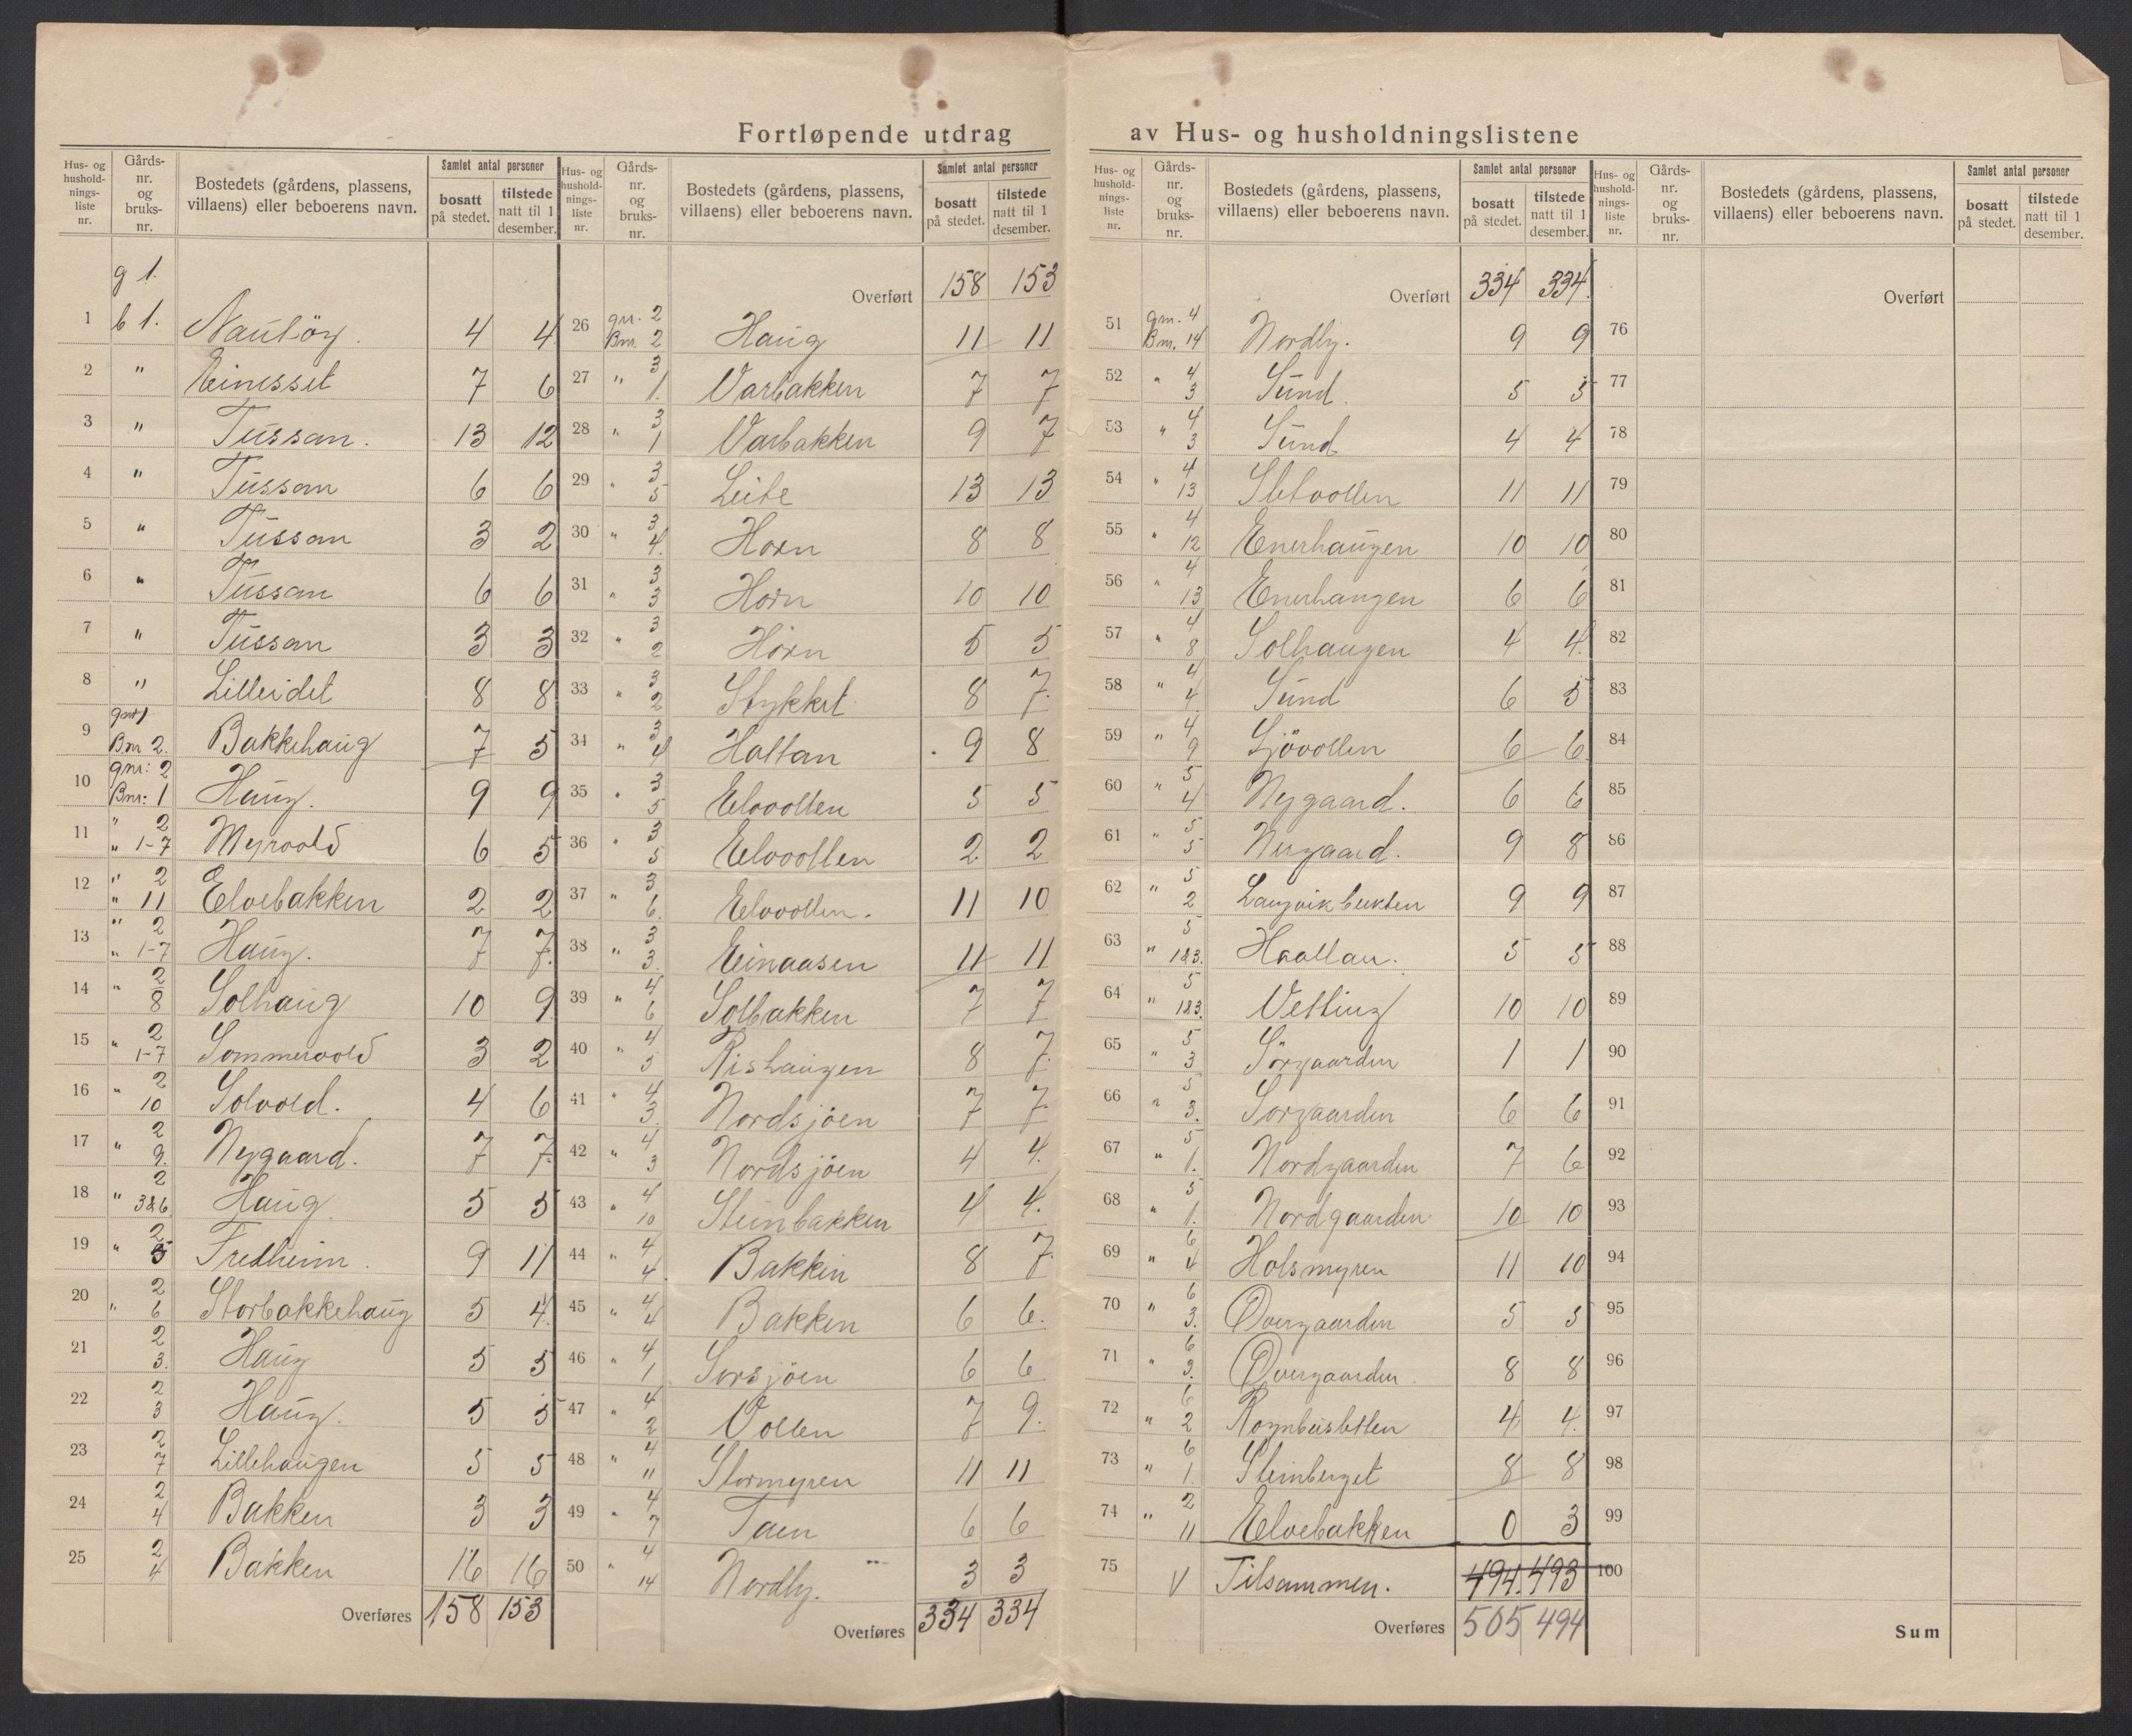 Fortløpende utdrag av Hus- og husholdningslistene
Hus- og husholdnings-liste nr. | Gårds-nr. og bruks-nr. | Bostedets (gårdens, plassens, villaens) eller beboerens navn. | Samlet antal personer | bosatt på stedet. | tilstede natt til 1 desember.
g 1.
1 b 1. Nautöy. 4 4
2 " Einesset 7 6
3 " Tussan. 13 12
4 " Tussan 6 6
5 " Tussan 3 2
6 " Tussan 6 6
7 " Tussan 3 3
8 " Lilleidet 8 8
9 gnr 1 Bnr 2. Bakkehaug 7 5
10 gnr: 2 Bnr: 1 Haug. 9 9
11 " 2 " 1-7 Myrvold 6 5
12 " 2 " 11 Elvebakken 2 2
13 " 2 " 1-7 Haug. 7 7.
14 " 2 8 Solhaug 10 9
15 " 2 1-7 Sommervold 3 2
16 " 2 10 Solvold. 4 6
17 " 2 9. Nygaard. 7 7
18 " 2 3&6 Haug 5 5
19 " 2 5 Fredheim. 9 11
20 " 2 6 Storbakkehaug 5 4
21 2 3. Haug 5 5
22 2 3 Haug. 5 5
23 2 7 Lillehaugen 5 5
24 2 4 Bakken 3 3
25 2 4 Bakken 16 16
Overføres 158 153
Hus- og husholdnings-liste nr. | Gårds-nr. og bruks-nr. | Bostedets (gårdens, plassens, villaens) eller beboerens navn. | Samlet antal personer | bosatt på stedet. | tilstede natt til 1 desember.
Overført 158 153
26 gnr. 2 Bnr. 2 Haug 11 11
27 " 3 1. Varbakken 7 7
28 " 3 1 Varbakken 9 7
29 " 3 5 Leite 13 13
30 " 3 4. Horn 8 8
31 " 3 3 Horn 10 10
32 " 3 2 Horn 5 5
33 " 3 2 Stykket 8 7.
34 " 3 4 Haltan 9 8
35 " 3 5 Elvvollen 5 5
36 " 3 5 Elvvollen 2 2
37 " 3 6. Elvvollen. 11 10
38 " 3 3. Einaasen 11 11
39 " 4 6 Solbakken 7 7
40 " 4 5 Rishaugen 8 7.
41 " 4 3. Nordsjöen 7 7.
42 " 4 3 Nordsjöen 4 4.
43 " 4 10 Steinbakken 4 4.
44 " 4 4. Bakken 8 7.
45 " 4 4 Bakken 6 6.
46 " 4 1 Sorsjöen 6 6
47 " 4 2 Vollen 7 9.
48 " 4 11 Stormyren 11 11
49 " 4 7 Taen 6 6
50 " 4 14 Nordby. 3 3
Overføres 334 334
Hus- og husholdnings-liste nr. | Gårds-nr. og bruks-nr. | Bostedets (gårdens, plassens, villaens) eller beboerens navn. | Samlet antal personer | bosatt på stedet. | tilstede natt til 1 desember.
Overført 334 334.
51 gnr. 4 Bnr. 14 Nordby. 9 9
52 " 4 3 Sund. 5 5
53 " 4 3 Sund 4 4
54 " 4 13 Sletvollen 11 11
55 " 4 12 Enerhaugen 10 10
56 " 4 13 Enerhaugen 6 6
57 " 4 8 Solhaugen 4 4.
58 " 4 4. Sund 6 5
59 " 4 9 Sjövollen 6 6
60 " 5 4 Nygaard. 6 6
61 " 5 5 Nergaard. 9 8
62 " 5 2 Langvikbukten 9 9
63 " 5 1&3. Haaltan. 5 5
64 " 5 1&3. Vetting 10 10
65 " 5 3 Sörgaarden 1 1
66 " 5 3. Sorgaarden 6 6
67 " 5 1. Nordgaarden 7 6
68 " 5 1. Nordgaarden 10 10
69 " 6 4 Holsmyren 11 10
70 " 6 3. Overgaarden 5 5
71 " 6 3. Overgaarden. 8 8
72 " 6 2 4 4.
73 " 6 1. Steinberget 8 8
74 " 2 11 Elvebakken 0 3
75 V Tilsammen. 494. 493
Overføres 505 494
Hus- og husholdnings-liste nr. | Gårds-nr. og bruks-nr. | Bostedets (gårdens, plassens, villaens) eller beboerens navn. | Samlet antal personer | bosatt på stedet. | tilstede natt til 1 desember.
Overført
76
77
78
79
80
81
82
83
84
85
86
87
88
89
90
91
92
93
94
95
96
97
98
99
100
Sum